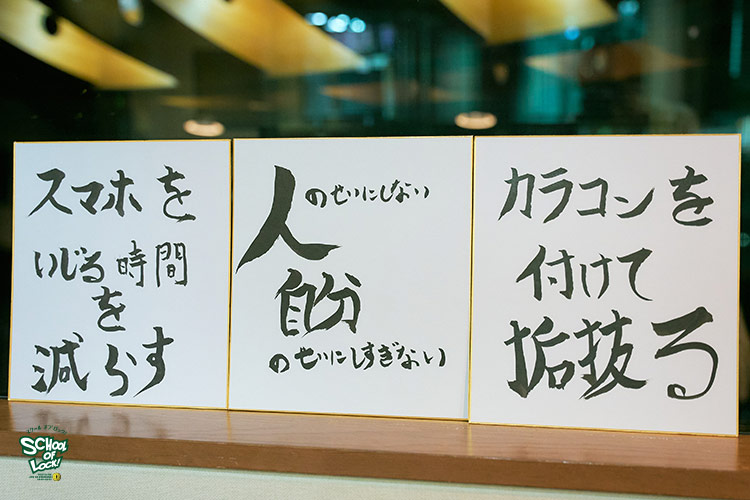 スマホを
いじる時間
を
減らす
人のせいにしない
自分
のせいにしすぎない
カラコンを
付けて
垢抜る
スクールオブロック!
SCHOOL
OF
LOCK!